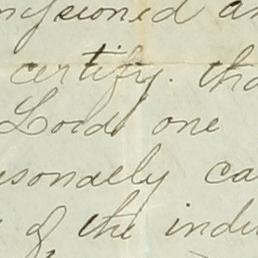 missioned an
certify. tha
Lord one
rsonaely ca
of the indi